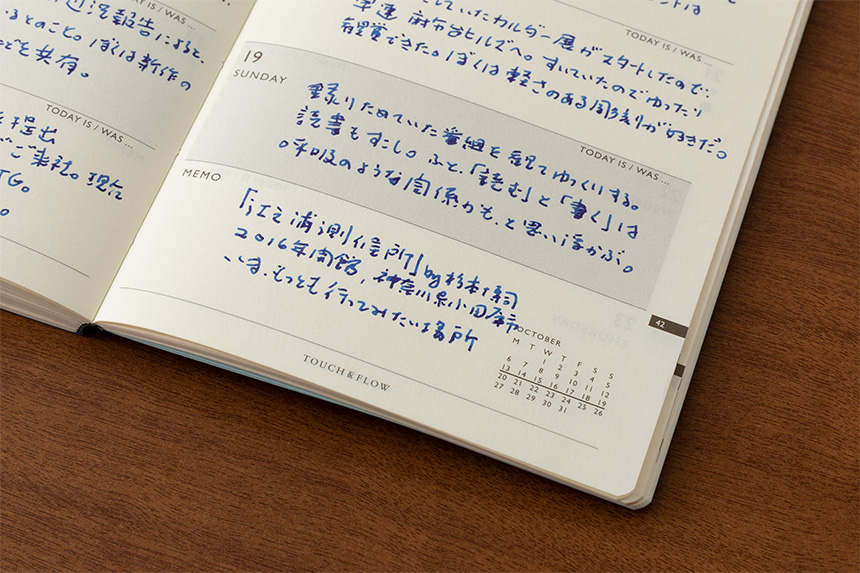 近況報告によると、
るとのこと。ぼくは新作の
どを共有。
TODAY IS / WAS ...
提出
ご来社。現合
TG。
していたカルダー展がスタートしたので、
TODAY IS / WAS ...
早速 麻布台ヒルズへ。すいていたのでゆったり
鑑賞できた。ぼくは 軽さのある彫刻が好きだ。
19
SUNDAY
TODAY IS / WAS ...
録りためていた番組を観てゆっくりする。
読書もすこし。ふと、「読む」と「書く」は
呼吸のような関係かも、と思い浮かぶ。
MEMO
「江之浦測候所」by 杉本博司
2016年開館，神奈川県小田原市
いま、もっとも行ってみたい場所
42
OCTOBER
M T W T F S S
1 2 3 4 5
6 7 8 9 10 11 12
13 14 15 16 17 18 19
20 21 22 23 24 25 26
27 28 29 30 31
TOUCH & FLOW